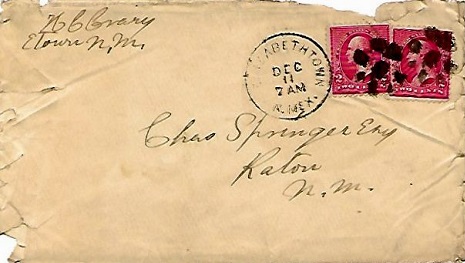 Etown N.M.
ELIZABETHTOWN
DEC
11
7 AM
N. MEX.
Chas Springer Esq
Raton
N. M.